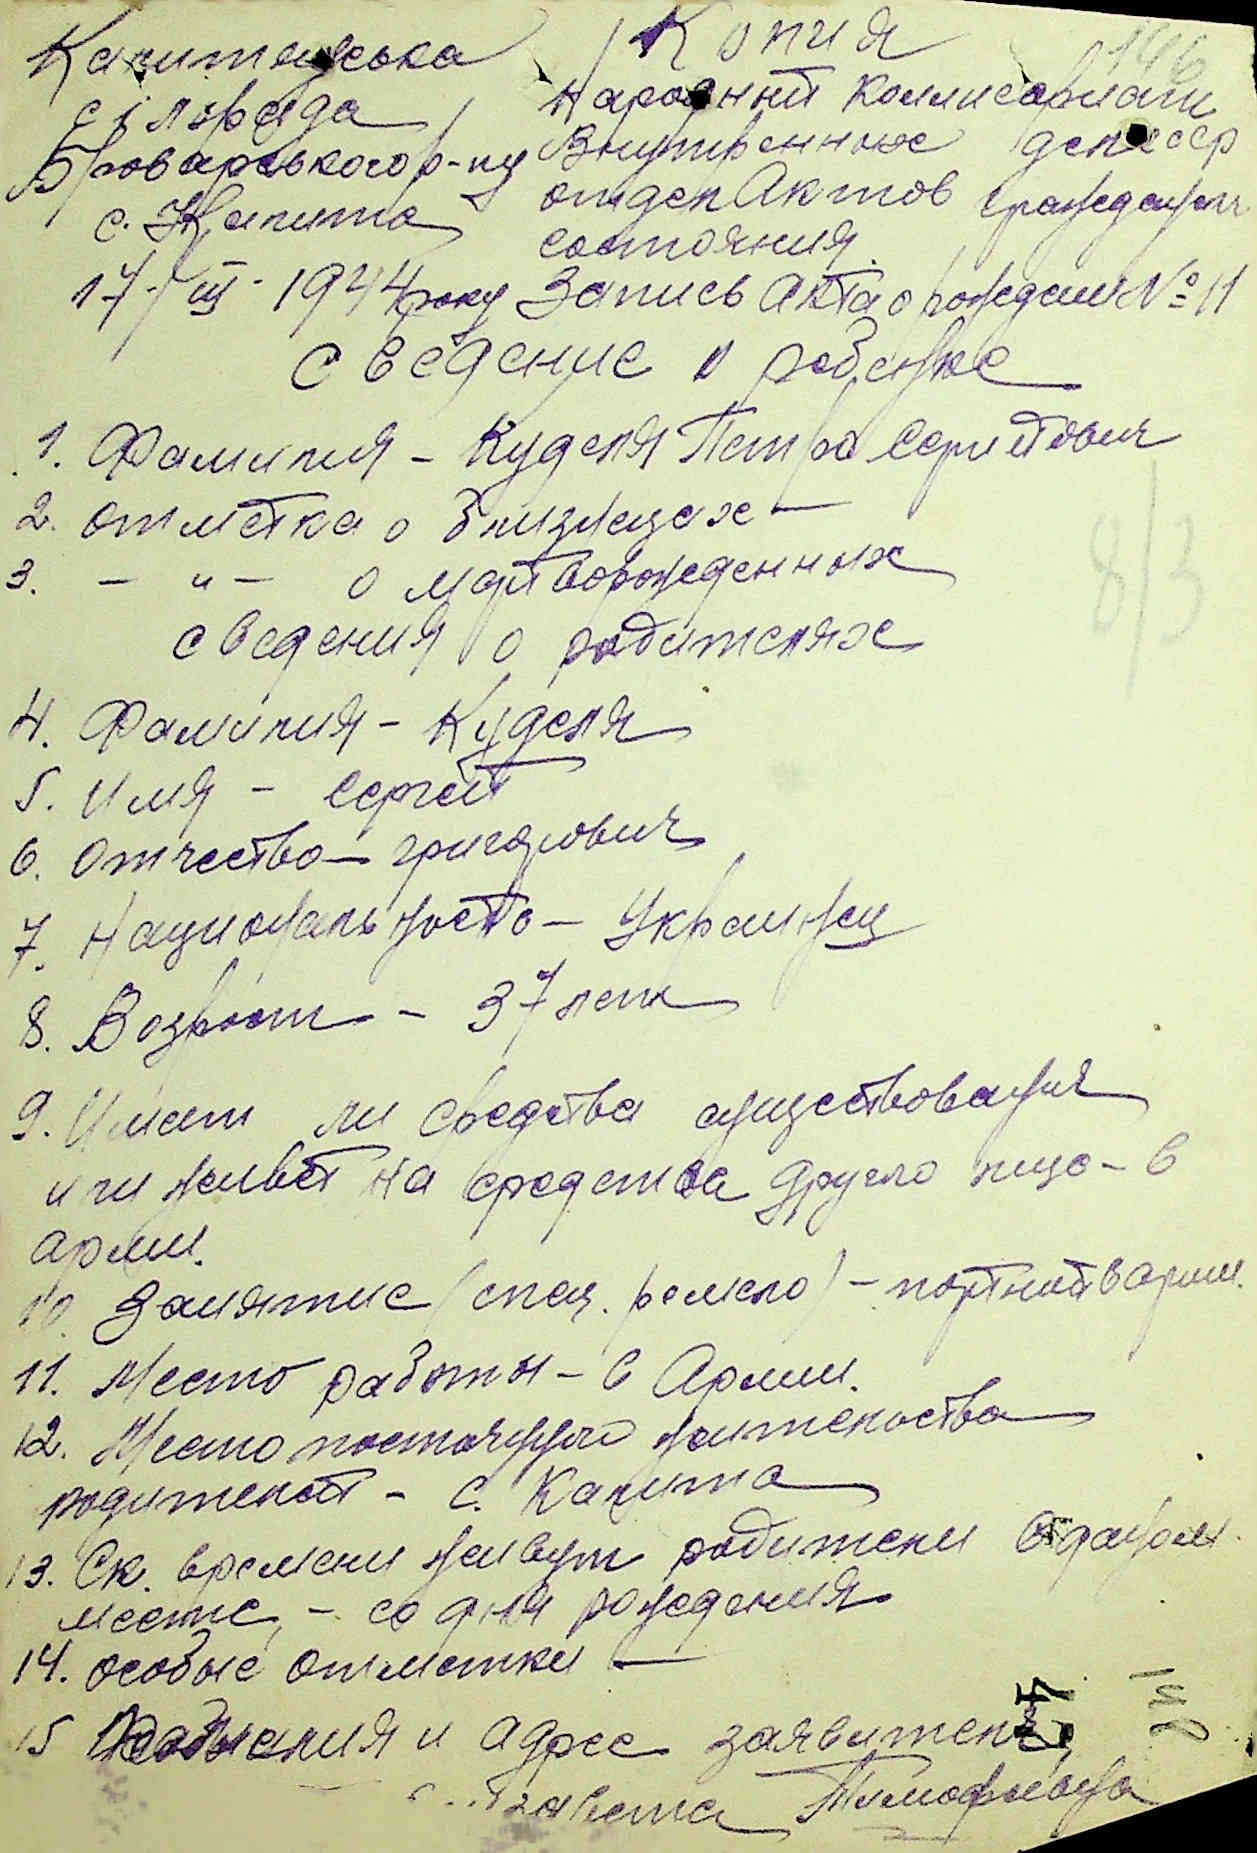 Копия
146
Капитанська
сільрада
Броварського р-ну
с. Капита
17/III - 1944 року
Народный Коммисариат
Внутренних дел СССР
отдел Актов гражданъ
состояния.
Запись Акта о рождении № 11
Сведение о ребенке
1. Фамилия - Куделя Петро Сергейович
2. Отметка о близнецах —
3. - „ - о мертворожденных
8/3
Сведения о родителях
4. Фамилия - Куделя
5. Имя - Сергей
6. Отчество - Григорович
7. Национальность - Украинец
8. Возраст - 37 лет
9. Имеет ли средства существования
или живет на средства другого лица - в
арми.
10. Занятие (спец. ремесло) - портной в арми.
11. Место работы - в Армии.
12. Место постоянного жительства
родителей - с. Капита
13. Ск. времени живут родители в даном
месте, - со дня рождения
14. Особые отметки —
15 Фамилия и адрес заявителя
Тимофеевна